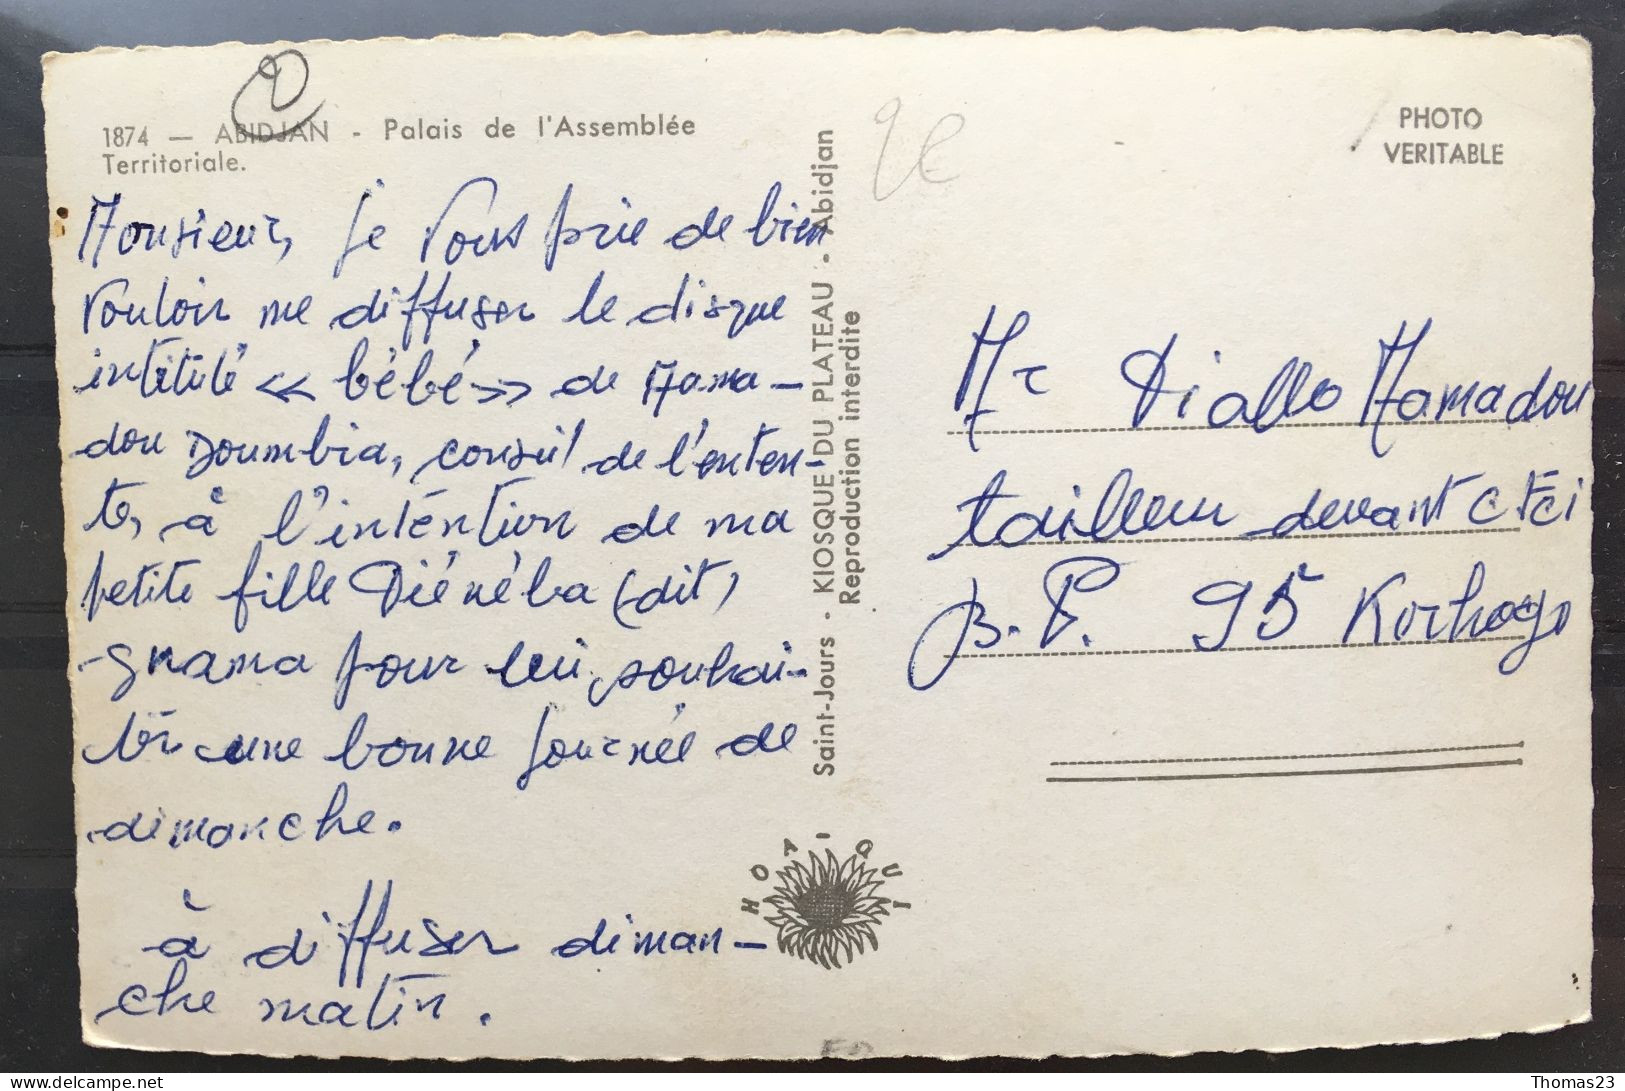 1874 — ABIDJAN - Palais de l'Assemblée
Territoriale.
Monsieur, je vous prie de bien
vouloir me diffuser le disque
intitulé << bébé >> de Mama-
dou Doumbia, conseil de l'enten-
te, à l'inténtion de ma
petite fille Diénéba (dit)
gnama pour lui souhai-
ter une bonne journée de
dimanche.
à diffuser diman-
che matin.
Saint-Jours - KIOSQUE DU PLATEAU - Abidjan
Reproduction interdite
HOA-QUI
PHOTO
VERITABLE
Mr Diallo Mamadou
tailleur devant ctci
B.P. 95 Korhogo
delcampe.net
Thomas23